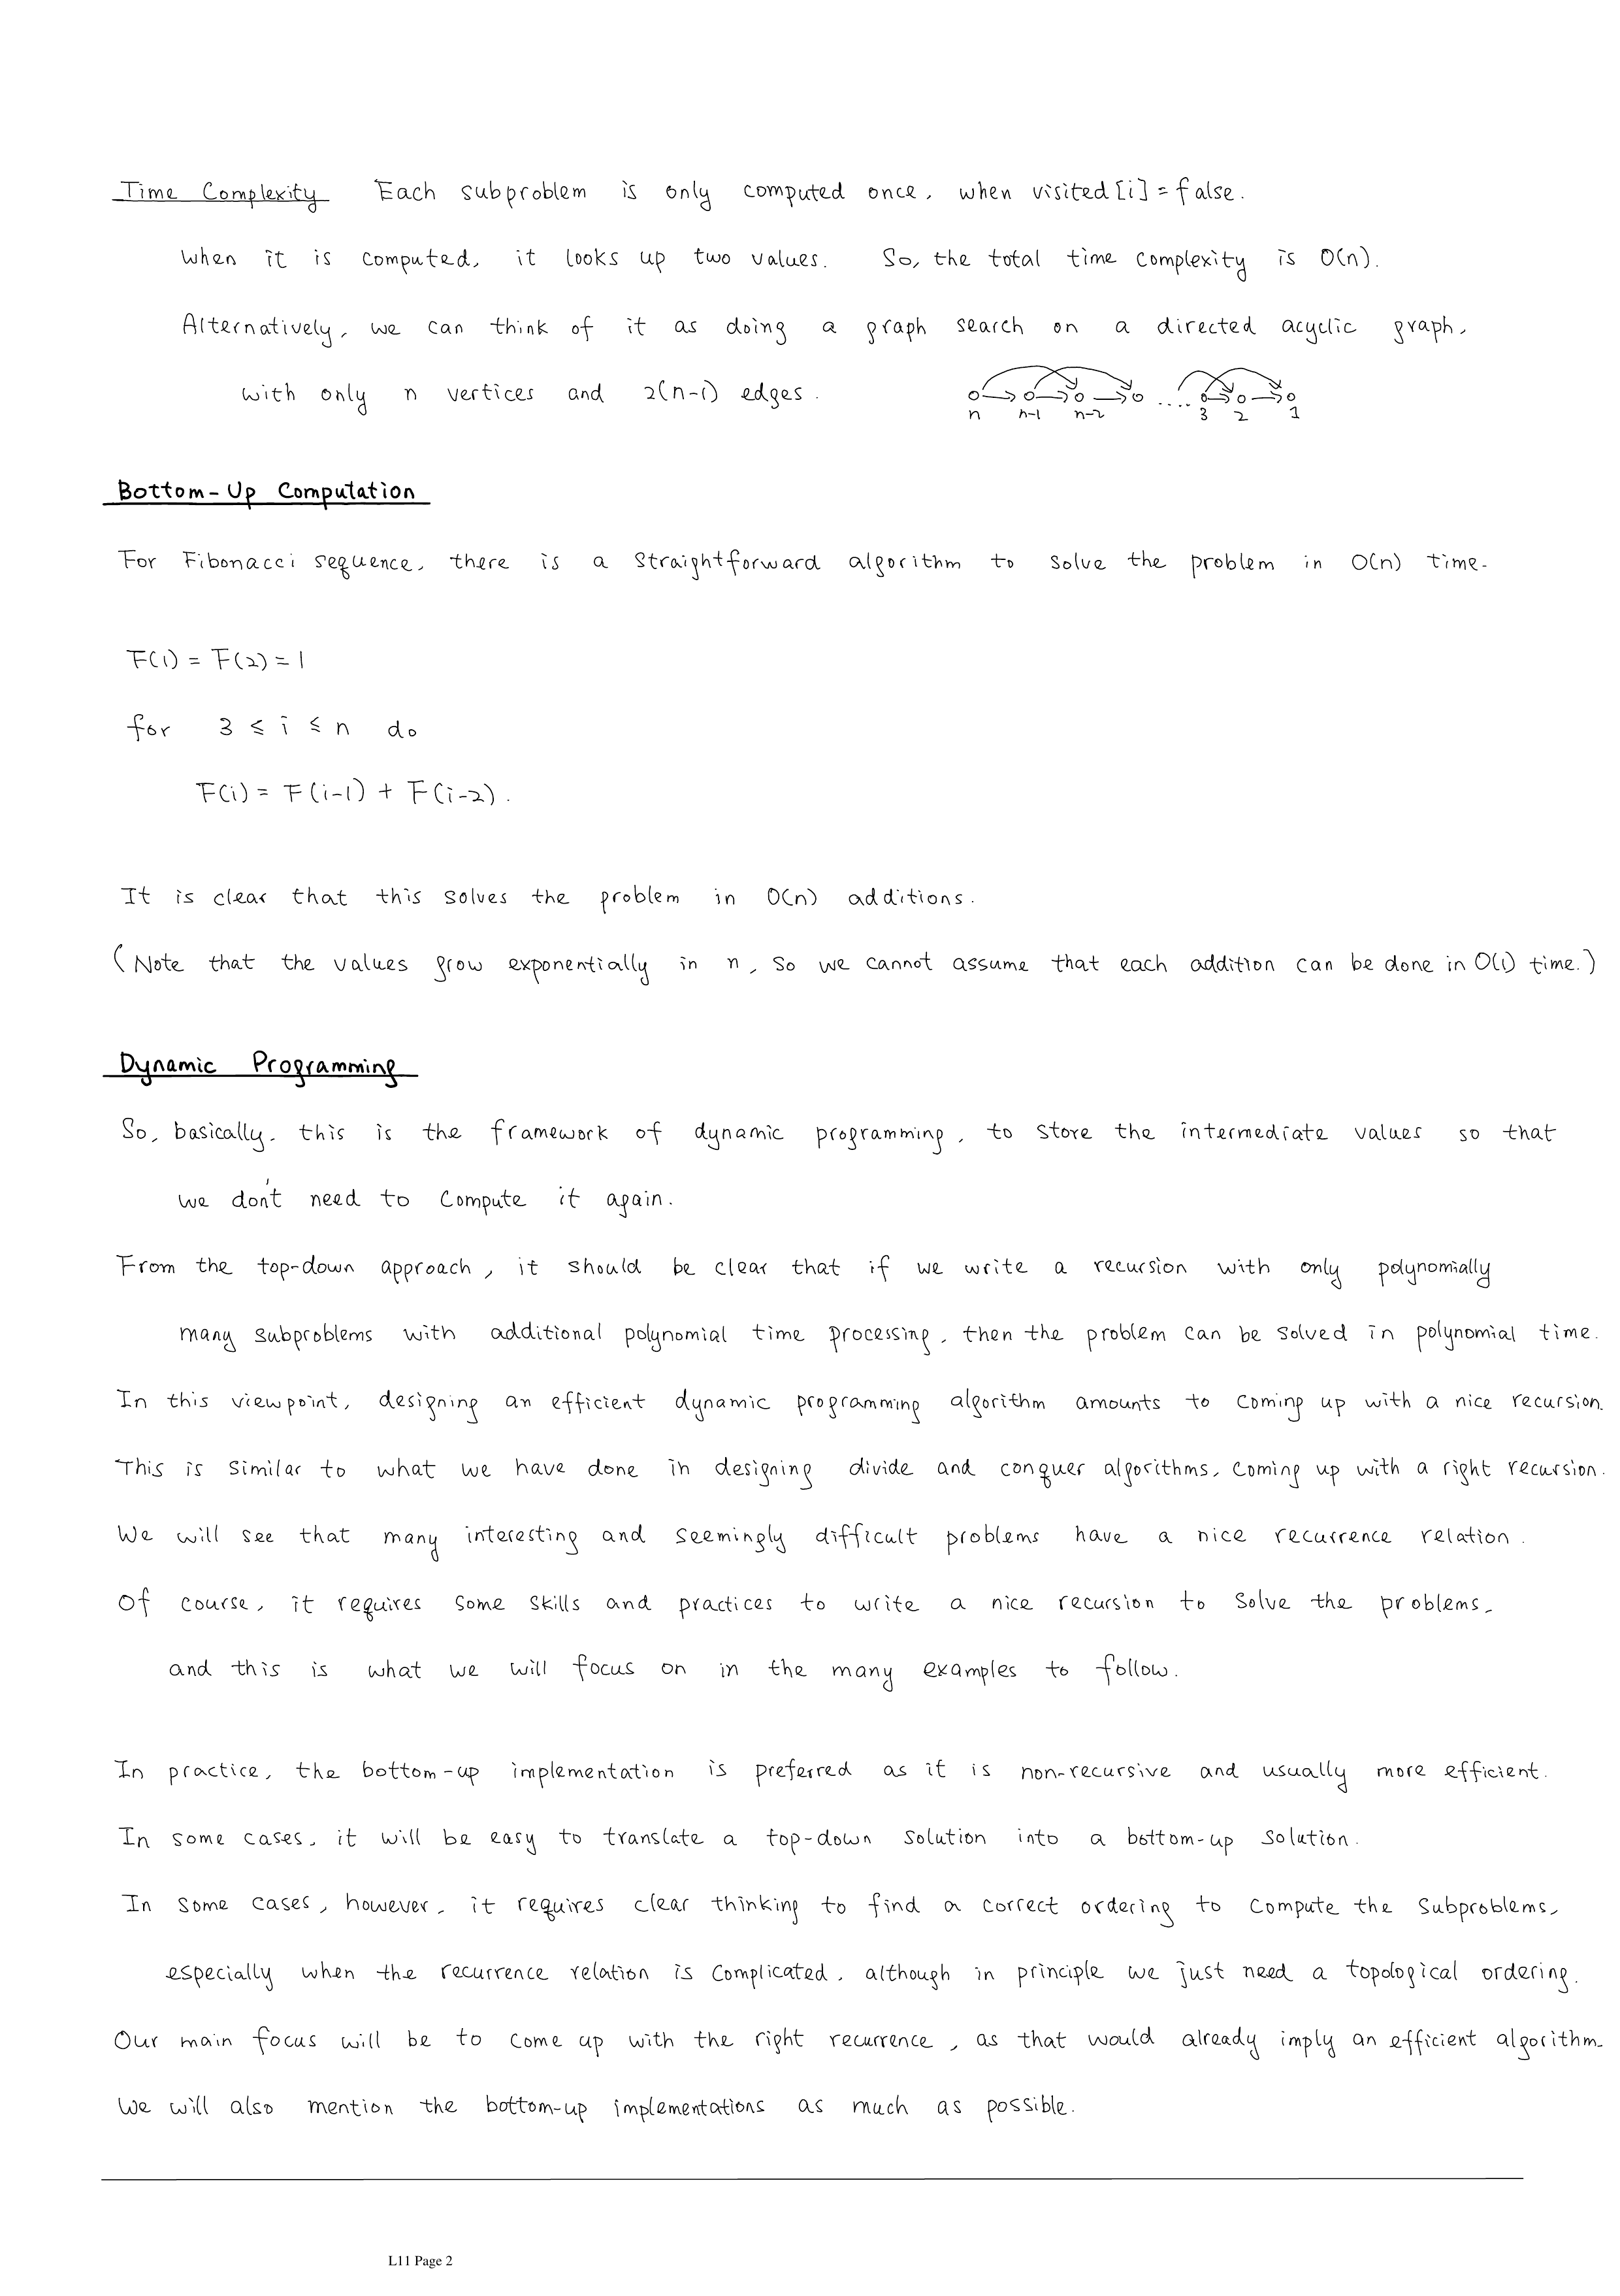 Time Complexity Each subproblem is only computed once, when visited[i]=false.
When it is computed, it looks up two values. So, the total time complexity is O(n).
Alternatively, we can think of it as doing a graph search on a directed acyclic graph,
with only n vertices and 2(n-1) edges.
n n-1 n-2 .... 3 2 1
Bottom-Up Computation
For Fibonacci sequence, there is a straightforward algorithm to solve the problem in O(n) time.
F(1) = F(2) = 1
for 3 ≤ i ≤ n do
F(i) = F(i-1) + F(i-2).
It is clear that this solves the problem in O(n) additions.
(Note that the values grow exponentially in n, so we cannot assume that each addition can be done in O(1) time.)
Dynamic Programming
So, basically, this is the framework of dynamic programming, to store the intermediate values so that
we don't need to compute it again.
From the top-down approach, it should be clear that if we write a recursion with only polynomially
many subproblems with additional polynomial time processing, then the problem can be solved in polynomial time.
In this viewpoint, designing an efficient dynamic programming algorithm amounts to coming up with a nice recursion.
This is similar to what we have done in designing divide and conquer algorithms, coming up with a right recursion.
We will see that many interesting and seemingly difficult problems have a nice recurrence relation.
Of course, it requires some skills and practices to write a nice recursion to solve the problems,
and this is what we will focus on in the many examples to follow.
In practice, the bottom-up implementation is preferred as it is non-recursive and usually more efficient.
In some cases, it will be easy to translate a top-down solution into a bottom-up solution.
In some cases, however, it requires clear thinking to find a correct ordering to compute the subproblems,
especially when the recurrence relation is complicated, although in principle we just need a topological ordering.
Our main focus will be to come up with the right recurrence, as that would already imply an efficient algorithm.
We will also mention the bottom-up implementations as much as possible.
L11 Page 2